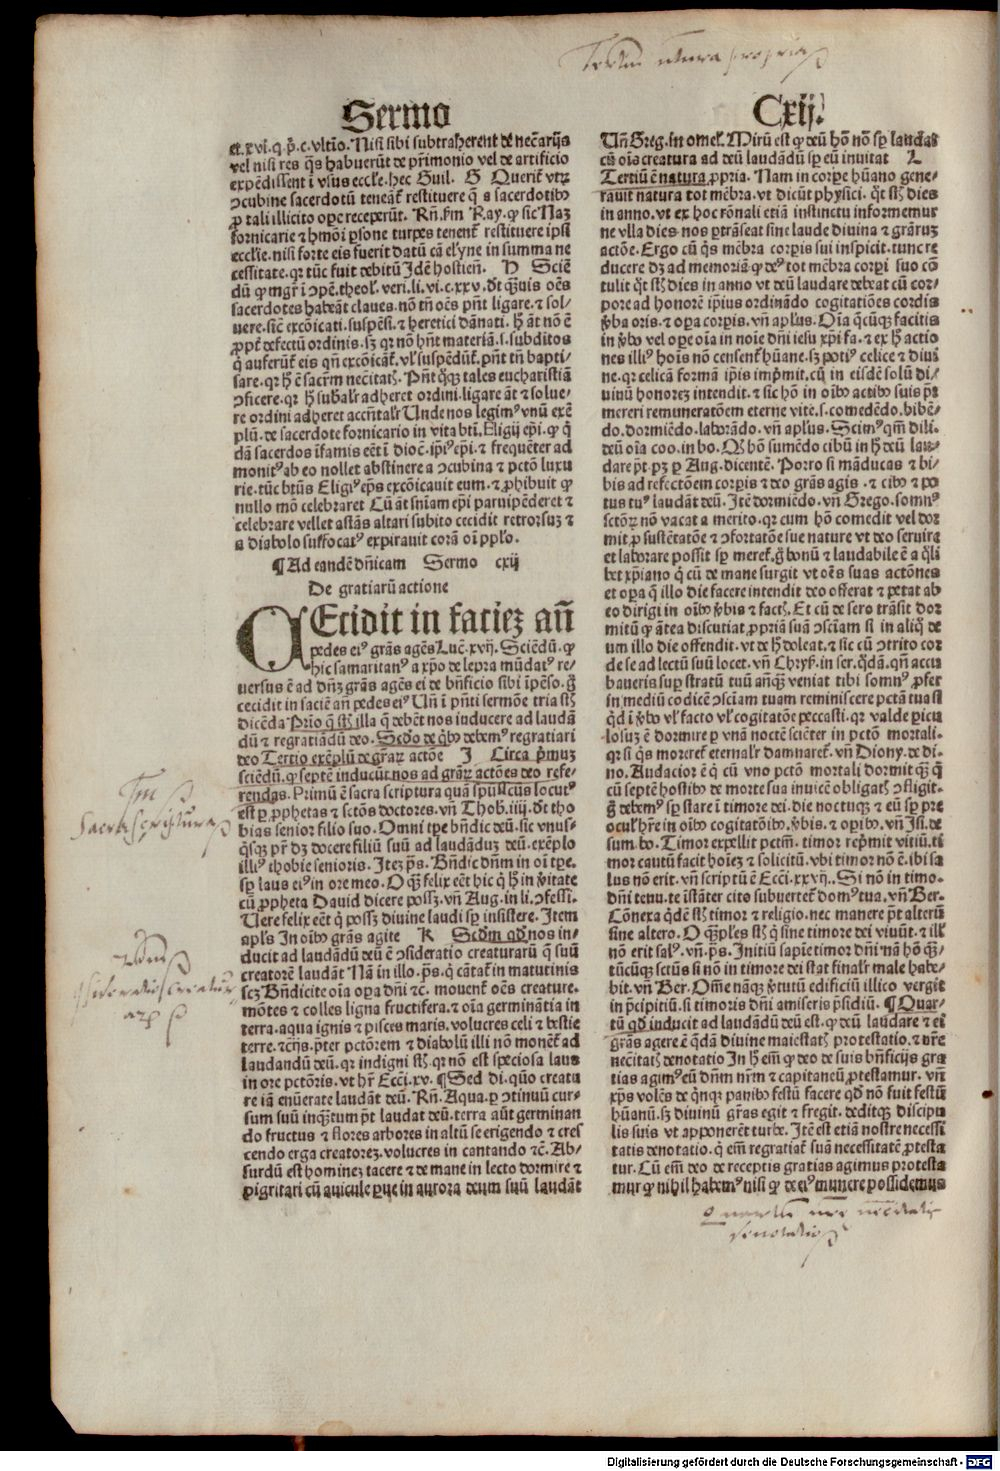 Tertiū natura propria
Sermo
Cxij.
et.xvi.q.p̄.c.vltīo. Nisi sibi subtraherent de necārijs
vel nisi res q̄s habuerūt de pr̄imonio vel de artificio
expēdissent ī vsus eccłe. hec Guil. G Querit᷑ vtꝝ
ↄcubine sacerdotū teneāt᷑ restituere q̄ a sacerdotibꝰ
ꝓ tali illicito oꝑe receperūt. Rn̄. ẜm Ray. ꝙ sic Naꝫ
fornicarie ⁊ hmōi ꝑsone turpes tenent᷑ restituere ipsi
eccl̄ie. nisi forte eis fuerit datū cā elyne in summa ne
cessitate. qꝛ tūc fuit debitū Idē hostien̄. H Sciē
dū ꝙ mgr̄ ī ↄpē. theol. veri. li. vi. c. xxv. dt̄ qͣuis oēs
sacerdotes habeāt claues. nō tn̄ oēs pn̄t ligare. ⁊ sol-
uere. sic̄ excōicati. suspēsi. ⁊ heretici dānati. h̄ āt nō ē
ꝓpt̄ defectū ordinis. sꝫ qꝛ nō hn̄t materiā. s. subditos
q̄ auferūt᷑ eis qn̄ excōicāt᷑. vl̓ suspēdūt᷑. pn̄t tn̄ bapti-
sare. qꝛ h̄ ē sacrm̄ necītatꝭ. Pn̄t qͦꝫ tales eucharistiā
ↄficere. qꝛ h̄ sub̄alr̄ adheret ordini. ligare āt ⁊ solue-
re ordini adheret accn̄talr̄ Unde nos legimꝰ vnū exē
plū. de sacerdote fornicario in vita btī. Eligij epī. ꝙ q̄
dā sacerdos īfamis eēt ī dioc̄. ip̄iꝰ epī. ⁊ frequēter ad
monitꝰ ab eo nollet abstinere a ↄcubina ⁊ pctō luxu
rie. tūc btūs Eligiꝰ ep̄s excōicauit eum. ⁊ ꝓhibuit ꝙ
nullo mō celebraret Cū āt sn̄iam epī paruipēderet ⁊
celebrare vellet astās altari subito cecidit retrorsuꝫ ⁊
a diabolo suffocatꝰ expirauit corā oī pplo.
¶ Ad eandē dn̄icam Sermo cxij
De gratiarū actione
CEcidit in facieꝫ an̄
pedes eiꝰ grās agēs Luc̄. xvij. Sciēdū. ꝙ
hic samaritanꝰ a xp̄o de lepra mūdatꝰ re-
uersus ē ad dn̄ꝫ grās agēs ei de bn̄ficio sibi īpēso. ḡ
cecidit in faciē an̄ pedes eiꝰ Un̄ ī pn̄ti sermōe tria st̄
dicēda Prīo q̄ st̄ illa q̄ debēt nos inducere ad laudā
dū ⁊ regratiādū deo. Scdo de qͥbꝰ debemꝰ regratiari
deo Tertio exēplū de graꝝ actōe I Circa pͥmuꝫ
sciēdū. ꝙ septē inducūt nos ad grāꝝ actōes deo refe-
rendas. Primū ē sacra scriptura quā spūscūs locutꝰ
est ꝑ ꝓphetas ⁊ sctōs doctores. vn̄ Thob. iiij. dt̄ tho
bias senior filio suo. Omni tp̄e bn̄dic deū. sic vnus-
qͥsqꝫ pr̄ dꝫ docere filiū suū ad laudāduꝫ deū. exēplo
illiꝰ thobie senioris. Iteꝫ ps̄. Bn̄dic dn̄m in oī tp̄e.
sp̄ laus eiꝰ in ore meo. O qͣꝫ felix eēt hic q̄ h̄ in v̄itate
cū ꝓpheta Dauid dicere possꝫ. vn̄ Aug. in li. ↄfessi.
Uere felix eēt q̄ possꝫ diuine laudi sp̄ insistere. Item
apl̄s In oībꝰ grās agite K Scdm qd̄ nos in-
ducit ad laudādū deū ē ↄsideratio creaturarū q̄ suū
creatorē laudāt Nā in illo. ps̄. q̄ cātat᷑ in matutinis
scꝫ Bn̄dicite oīa oꝑa dn̄i ⁊c̄. mouent᷑ oēs creature.
mōtes ⁊ colles ligna fructifera. ⁊ oīa germinātia in
terra. aqua ignis ⁊ pisces maris. volucres celi ⁊ bestie
terre. ⁊cijs. pter pctōrem ⁊ diabolū illi nō monēt᷑ ad
laudandū deū. qꝛ indigni st̄. qꝛ nō est speciosa laus
in ore pctōris. vt hr̄ Ecci. xv. ¶ Sed di. quō creatu
re iā enūerate laudāt deū. Rn̄. Aqua. ꝑ ↄtinuū cur-
sum suū inqͣtum pt̄ laudat deū. terra aūt germinan
do fructus ⁊ flores arbores in altū se erigendo ⁊ cres
cendo erga creatoreꝫ. volucres in cantando ⁊c̄. Ab-
surdū est homineꝫ tacere ⁊ de mane in lecto dormire ⁊
pigritari cū auicule ꝑue in aurora deum suū laudāt
Un̄ Greg. in omel. Mirū est ꝙ deū hō nō sp̄ laudat
cū oīs creatura ad deū laudādū sp̄ eū inuitat L
Tertiū ē natura ꝓpria. Nam in corꝑe hūano gene-
rauit natura tot mēbra. vt dicūt physici. qͦt st̄ dies
in anno. vt ex hoc rōnali etiā instinctu informemur
ne vlla dies nos ꝑtrāseat sine laude diuina ⁊ grāruꝫ
actōe. Ergo cū q̄s mēbra corꝑis sui inspicit. tunc re
ducere dꝫ ad memoriā ꝙ deꝰ tot mēbra corꝑi suo cō
tulit qͦt st̄ dies in anno vt deū laudare debeat cū cor-
pore ad honorē ipsius ordinādo cogitatiōes cordis
v̄ba oris. ⁊ oꝑa corꝑis. vn̄ apl̄us. Oīa q̄cūqꝫ facitis
in v̄bo vel oꝑe oīa in noīe dn̄i iesu xp̄i fa. ⁊ ex h̄ actio
nes illiꝰ hoīs nō censent᷑ hūane. sꝫ potiꝰ celice ⁊ diui
ne. qꝛ celicā formā ip̄is imp̄mit. cū in eisdē solū di-
uinū honoreꝫ intendit. ⁊ sic hō in oībꝰ actibꝰ suis pt̄
mereri remuneratōem eterne vite. s. comedēdo. bibē-
do. dormiēdo. laborādo. vn̄ apl̄us. Scimꝰ qm̄ dili.
deū oīa coo. in bo. Qd̄ hō sumēdo cibū in h̄ deū lau-
dare pt̄. pꝫ ꝑ Aug. dicentē. Porro si māducas ⁊ bi-
bis ad refectōem corꝑis ⁊ deo grās agis. ⁊ cibꝰ ⁊ po
tus tuꝰ laudāt deū. Itē dormiēdo. vn̄ Grego. somnꝰ
sctōꝝ nō vacat a merito. qꝛ cum hō comedit vel dor
mit ꝓ sustētatōe ⁊ ↄfortatōe sue nature vt deo seruire
et laborare possit sp̄ meret᷑. ḡ bonū ⁊ laudabile ē a qͦli
bet xp̄iano q̄ cū de mane surgit vt oēs suas actōnes
et oꝑa q̄ illo die facere intendit deo offerat ⁊ petat ab
eo dirigi in oībꝰ v̄bis ⁊ factꝭ. Et cū de sero trāsit dor
mitū ꝙ ātea discutiat ꝓpriā suā ↄsciam si in aliqͦ de
um illo die offendit. vt de h̄ doleat. ⁊ sic cū ↄtrito cor
de se ad lectū suū locet. vn̄ Chrys. in ser. qͦdā. qn̄ accu
baueris suꝑ stratū tuū anqͣꝫ veniat tibi somnꝰ ꝓfer
in mediū codicē ↄsciam tuam reminiscere pctā tua si
qͥd ī v̄bo vl̓ facto vl̓ cogitatōe peccasti. qꝛ valde ꝑicu
losuꝫ ē dormire ꝑ vnā noctē sciēter in pctō mortali.
qꝛ si q̄s moreret᷑ eternalr̄ damnaret᷑. vn̄ Diony. de di-
no. Audacior ē q̄ cū vno pctō mortali dormit qͣꝫ q̄
cū septē hostibꝰ de morte sua inuicē obligatꝭ ↄfligit.
ḡ debemꝰ sp̄ stare ī timore dei. die noctuqꝫ ⁊ eū sp̄ pre
oculꝭ hr̄e in oībꝰ cogitatōibꝰ. v̄bis. ⁊ oꝑibꝰ. vn̄ Isi. de
sum. bo. Timor expellit pctm̄. timor rep̄mit vitiū. ti
mor cautū facit hoīeꝫ ⁊ solicitū. vbi timor nō ē. ibi sa
lus nō erit. vn̄ scriptū ē Ecci. xxvij. Si nō in timo-
dn̄i tenu. te īstāter cito subuertet᷑ domꝰ tua. vn̄ Ber.
Cōnexa qͦdē st̄ timor ⁊ religio. nec manere pt̄ alterū
sine altero. O qͣꝫ ples st̄ q̄ sine timore dei viuūt. ⁊ ill̓
nō erit salꝰ. vn̄ ps̄. Initiū sapīe timor dn̄i nā hō qͣꝫ-
tūcūqꝫ sctūs si nō in timore dei stat finalr̄ male habe-
bit. vn̄ Ber. Om̄e nāqꝫ v̄tutū edificiū illico vergit
in p̄cipitiū. si timoris dn̄i amiseris p̄sidiū. ¶ Quar-
tū qd̄ inducit ad laudādū deū est. ꝙ deū laudare ⁊ ei
grās agere ē qͦdā diuine maiestatꝭ ꝓtestatio. ⁊ vr̄e
necītatꝭ denotatio In h̄ em̄ ꝙ deo de suis bn̄ficijs gra
tias agimꝰ eū dn̄m nr̄m ⁊ capitaneū ꝓtestamur. vn̄
xp̄s volēs de qͥnqꝫ panibꝰ festū facere qd̄ nō fuit festū
hūanū. sꝫ diuinū gr̄as egit ⁊ fregit. deditqꝫ discipu
lis suis vt apponerēt turbe. Itē est etiā nostre necessi
tatis denotatio. q̄ em̄ regratiat᷑ suā necessitatē ꝓtesta
tur. Cū em̄ deo de receptis gratias agimus protesta
mur ꝙ nihil habemꝰ nisi ꝙ de eiꝰ munere possidemus
Sacra scriptura